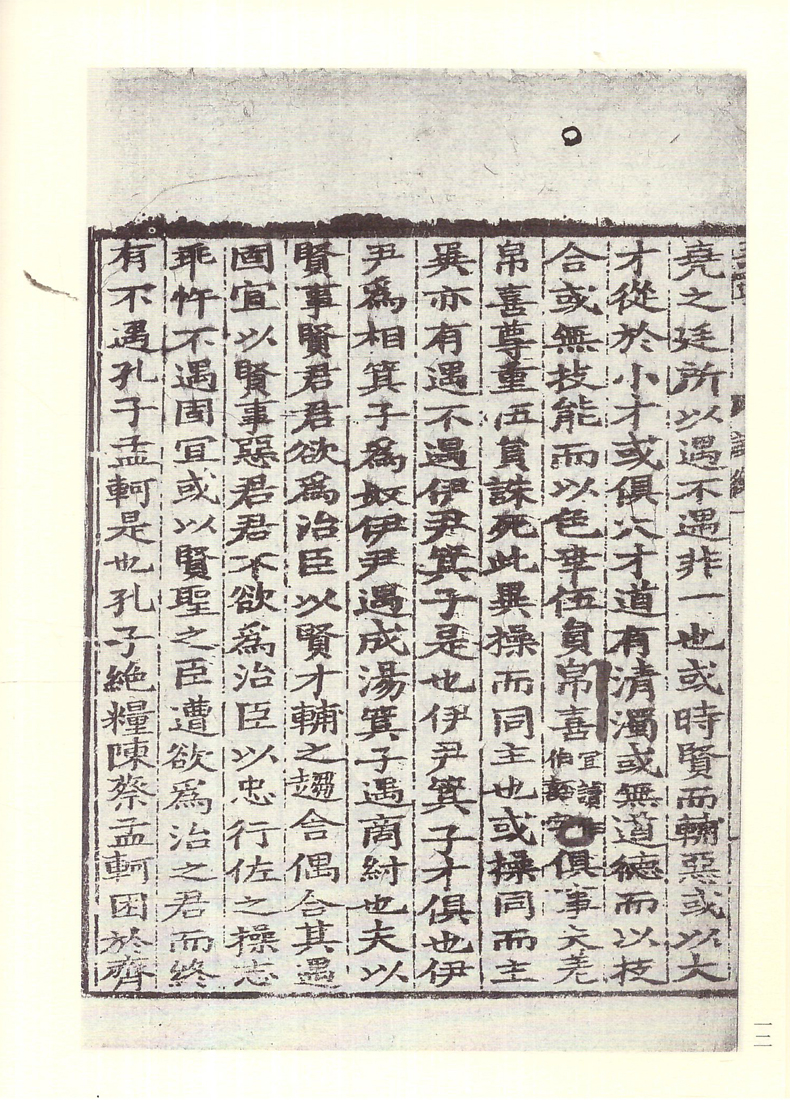 堯之廷所以遇不遇非一也或時賢而輔惡或以大
才從於小才或俱大才道有清濁或無道德而以技
合或無技能而以色幸伍員帛喜宜讀伯俱事夫差
帛喜尊重伍員誅死此異操而同主也或操同而主
異亦有遇不遇伊尹箕子是也伊尹箕子才俱也伊
尹為相箕子為奴伊尹遇成湯箕子遇商紂也夫以
賢事賢君君欲為治臣以賢才輔之趨合偶合其遇
固宜以賢事惡君君不欲為治臣以忠行佐之操志
乖忤不遇固宜或以賢聖之臣遭欲為治之君而終
有不遇孔子孟軻是也孔子絶糧陳蔡孟軻困於齊
一三